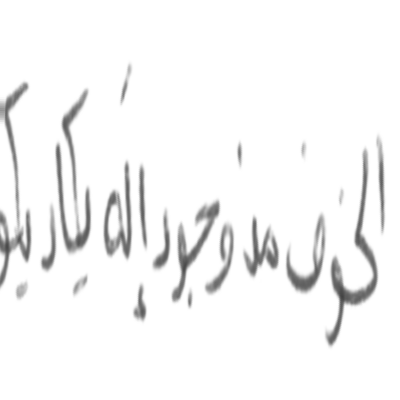 الخوف مذ وجود إله يكاد يكو